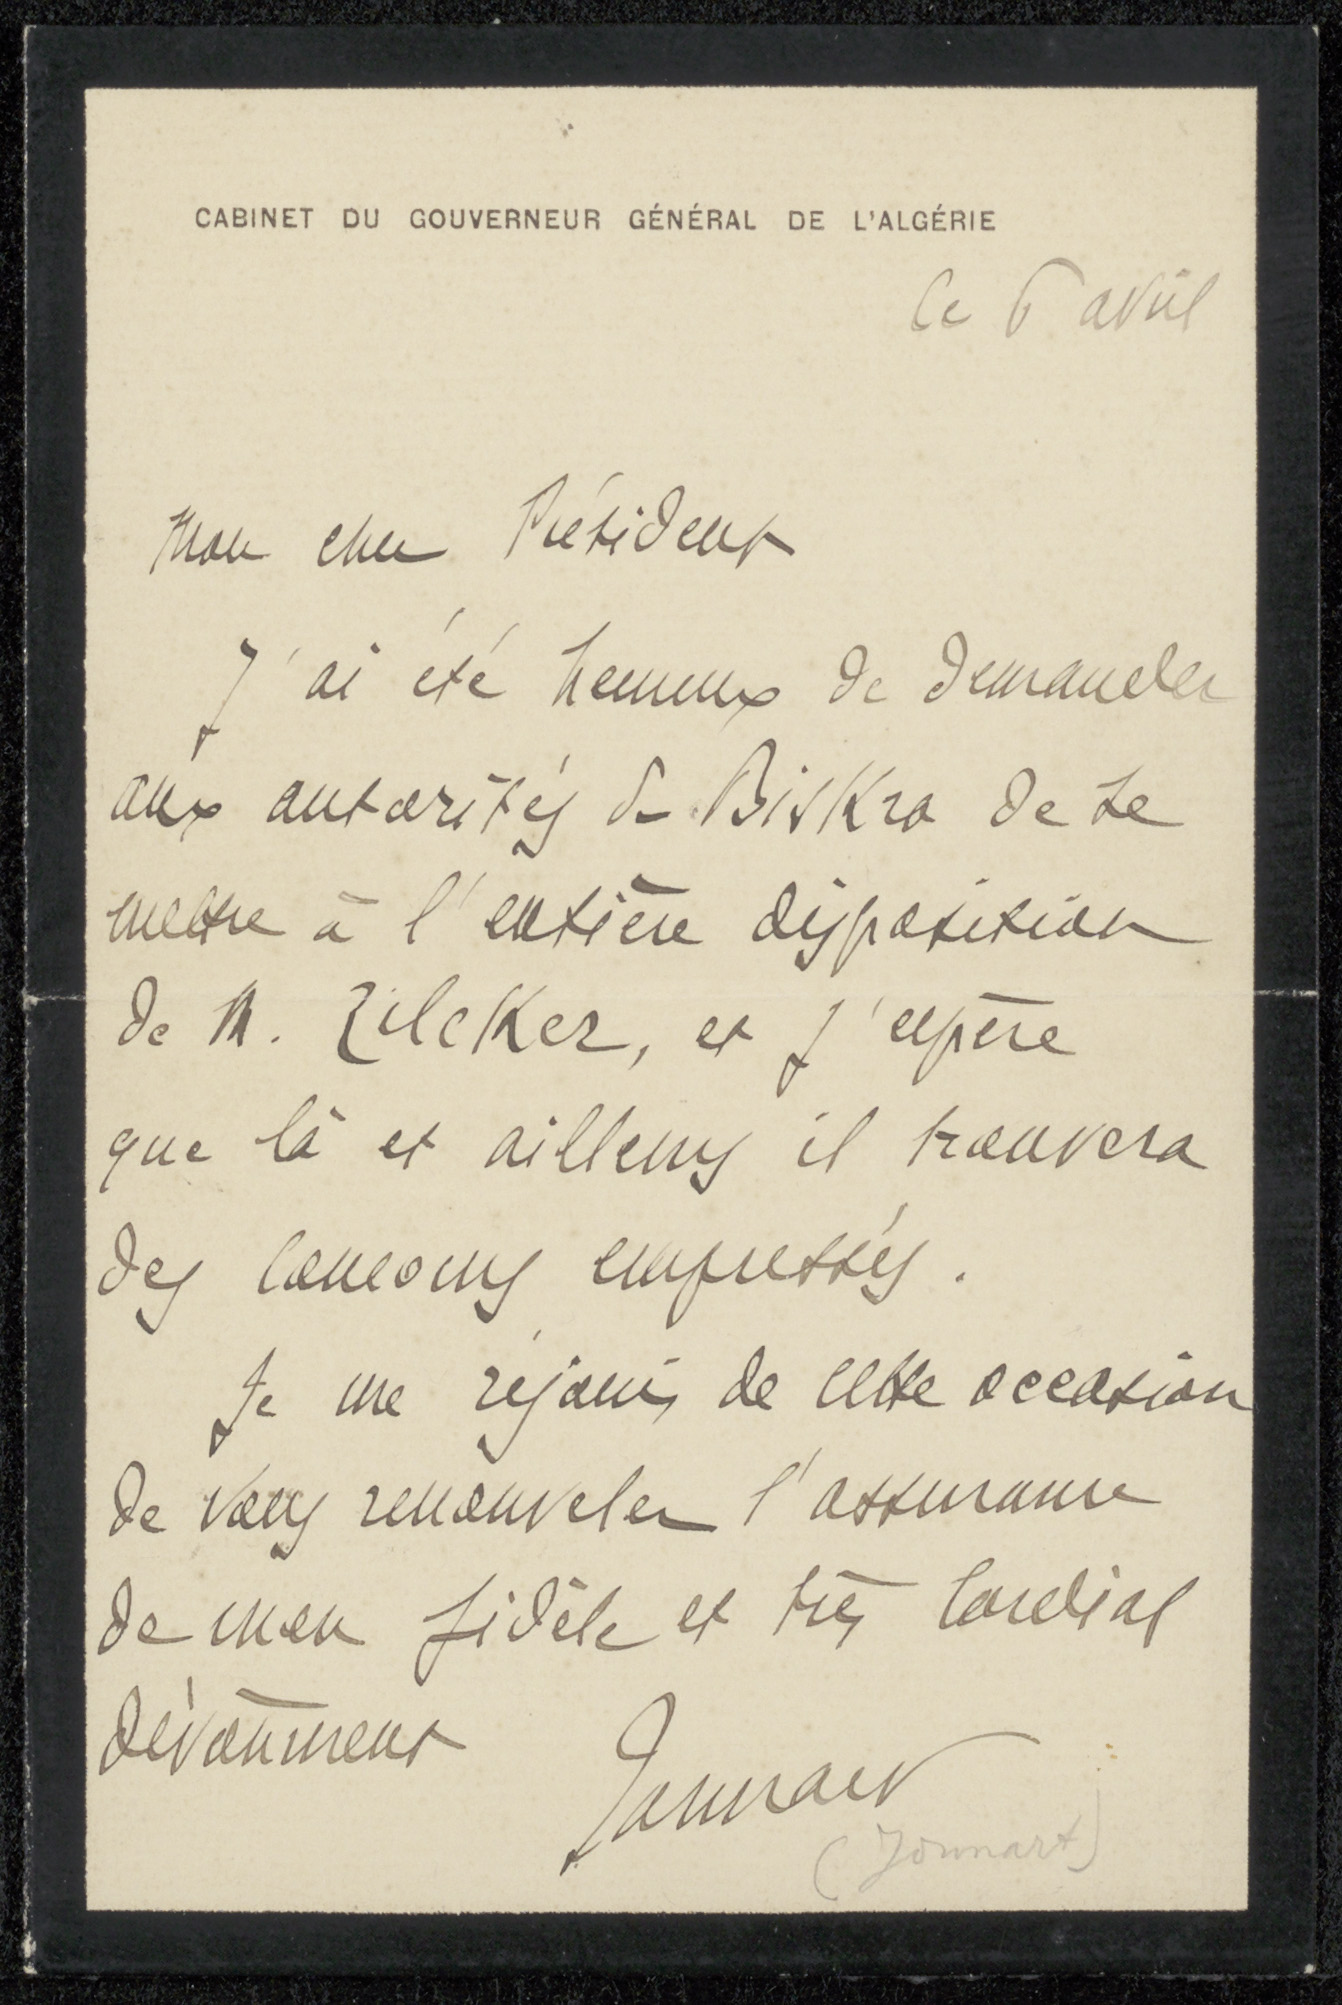 CABINET DU GOUVERNEUR GÉNÉRAL DE L'ALGÉRIE
Ce 6 avril
Mon cher Président
J'ai été heureux de demander
aux autorités de Biskra de se
mettre à l'entière disposition
de M. Zilcker, et j'espère
que là et ailleurs il trouvera
des concours empressés.
Je me réjouis de cette occasion
de vous renouveler l'assurance
de mon fidèle et très cordial
dévoûment
Jonnart
(Jonnart)